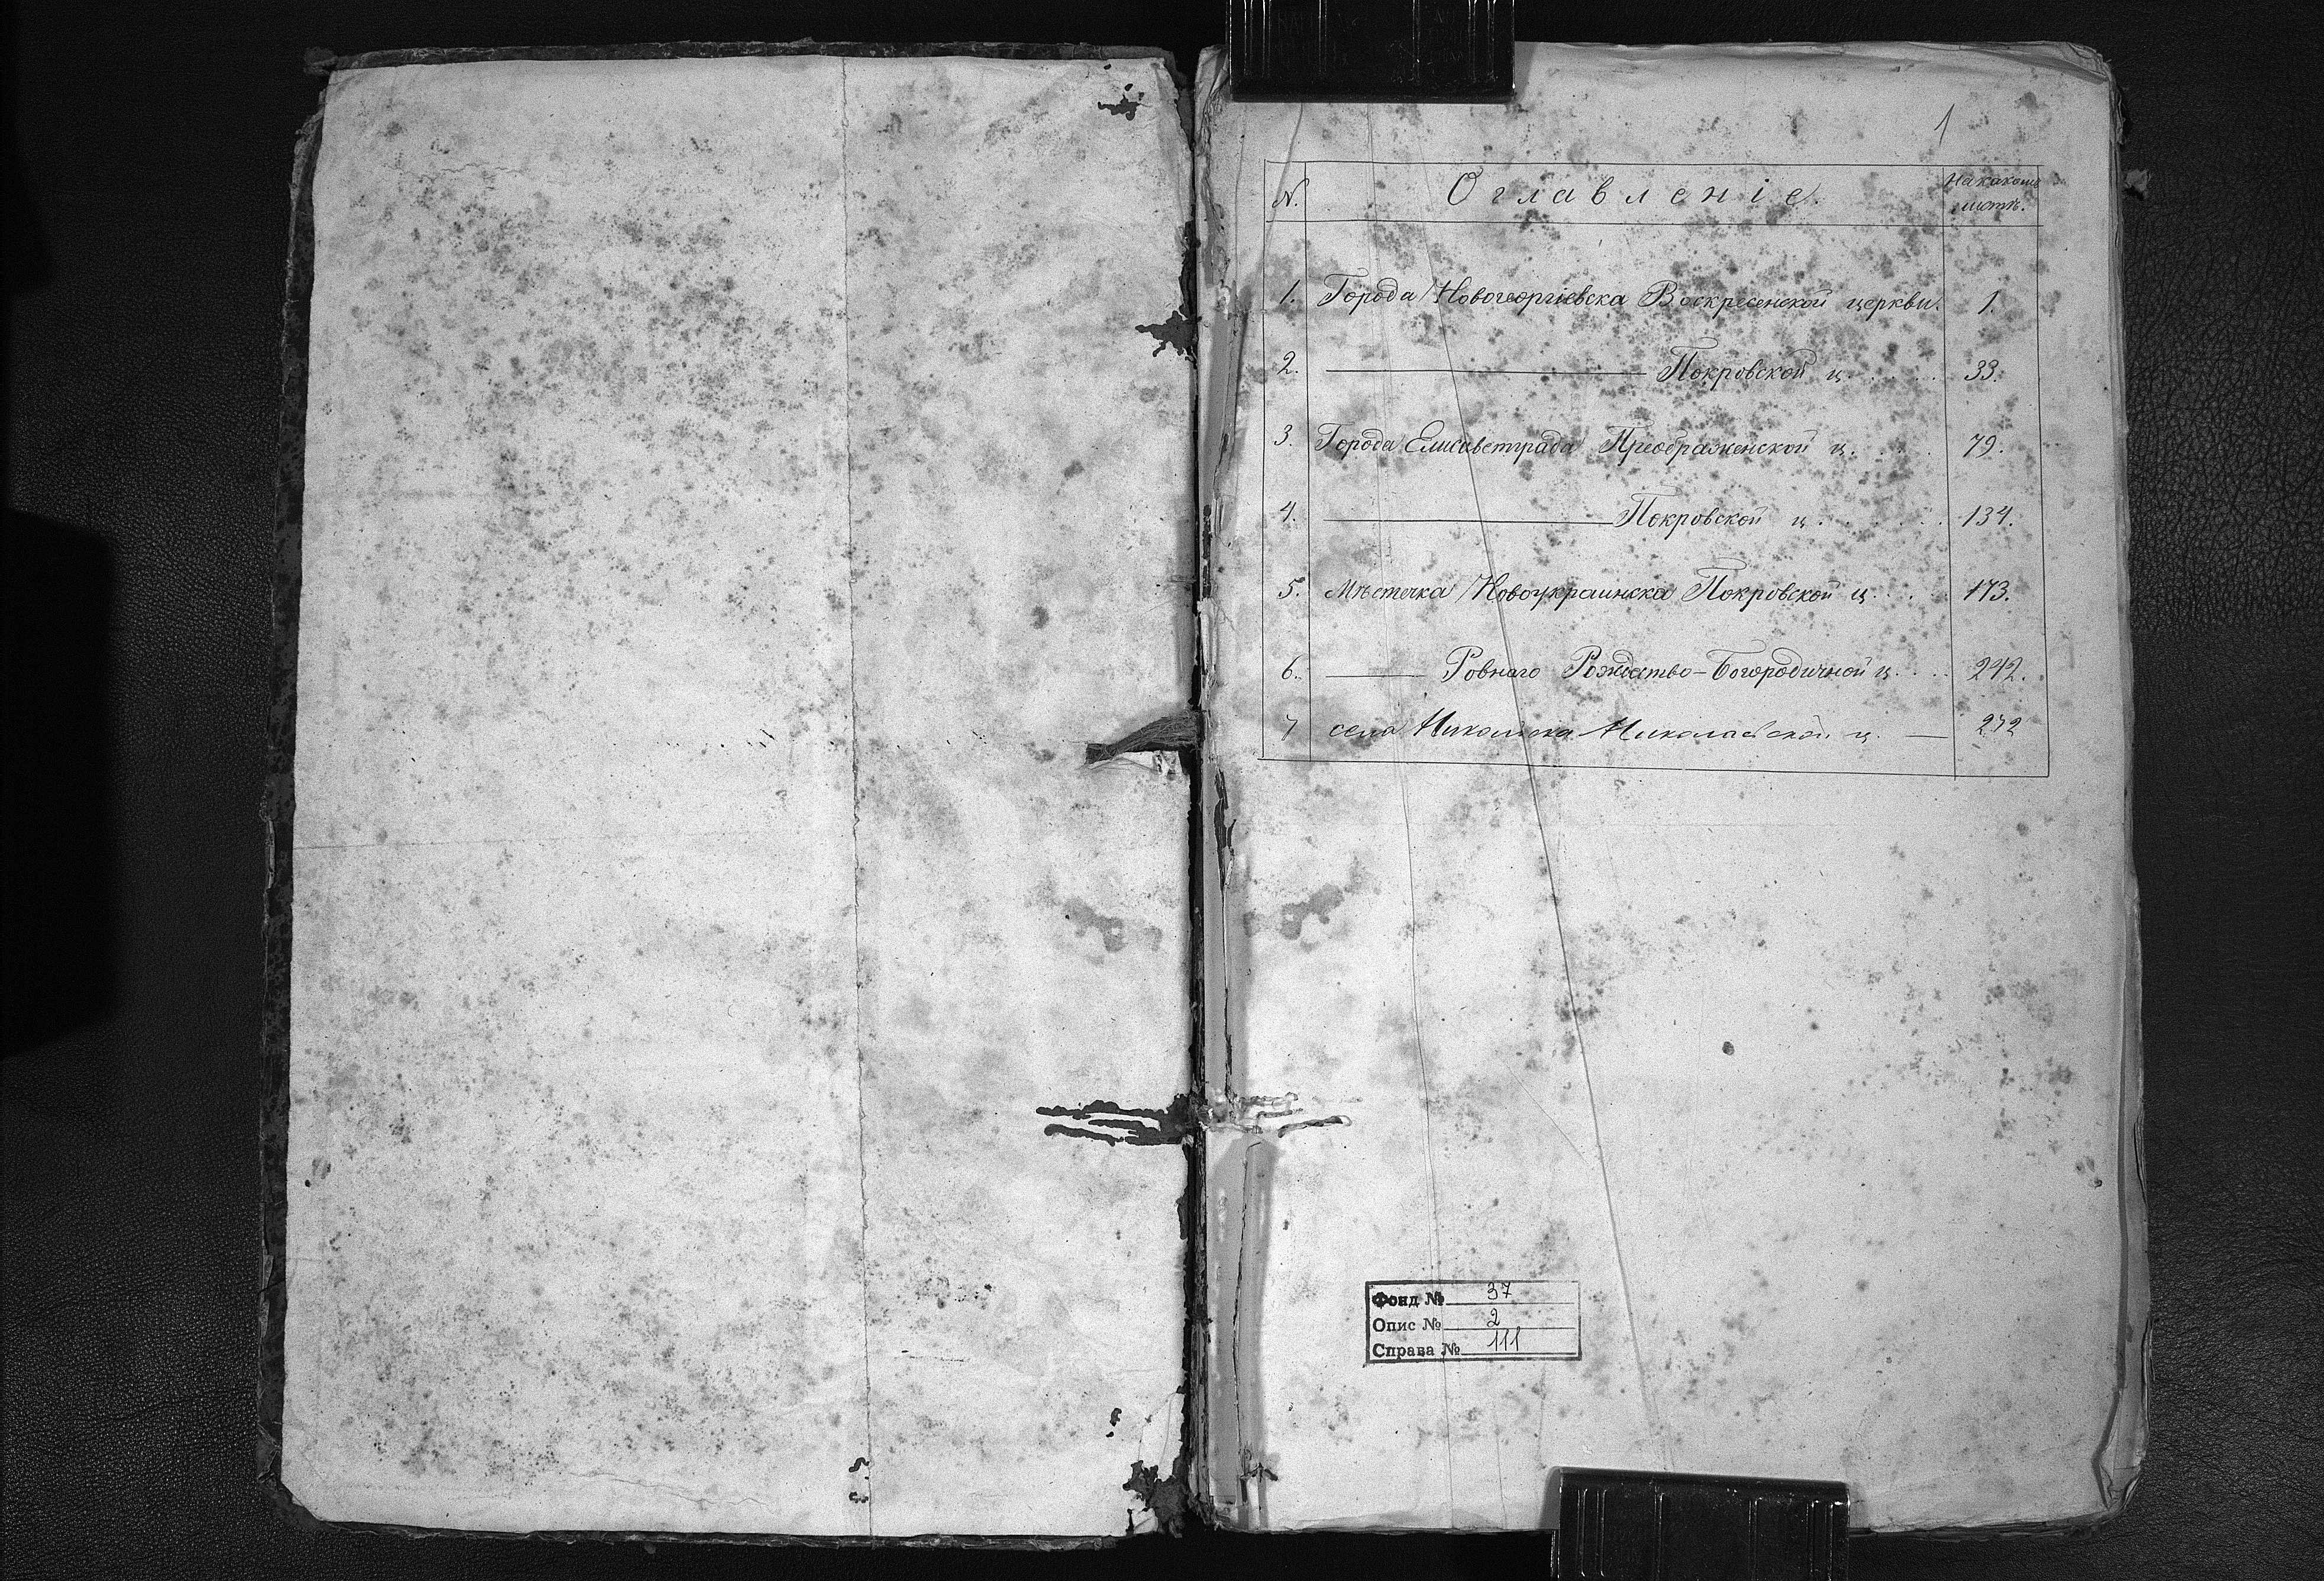 1
N. Оглавленіе. На какомъ листѣ.
1. Города Новогеоргіевска Воскресенской церкви. 1.
2. Покровской ц. 33.
3. Города Елисаветграда Преображенской ц. 79.
4. Покровской ц. 134.
5. Мѣстечка Новоукраинска Покровской ц. 173.
6. Ровнаго Рождество-Богородичной ц. 242.
7 села Никольска Николаевской ц. 272
Фонд № 37
Опис № 2
Справа № 111